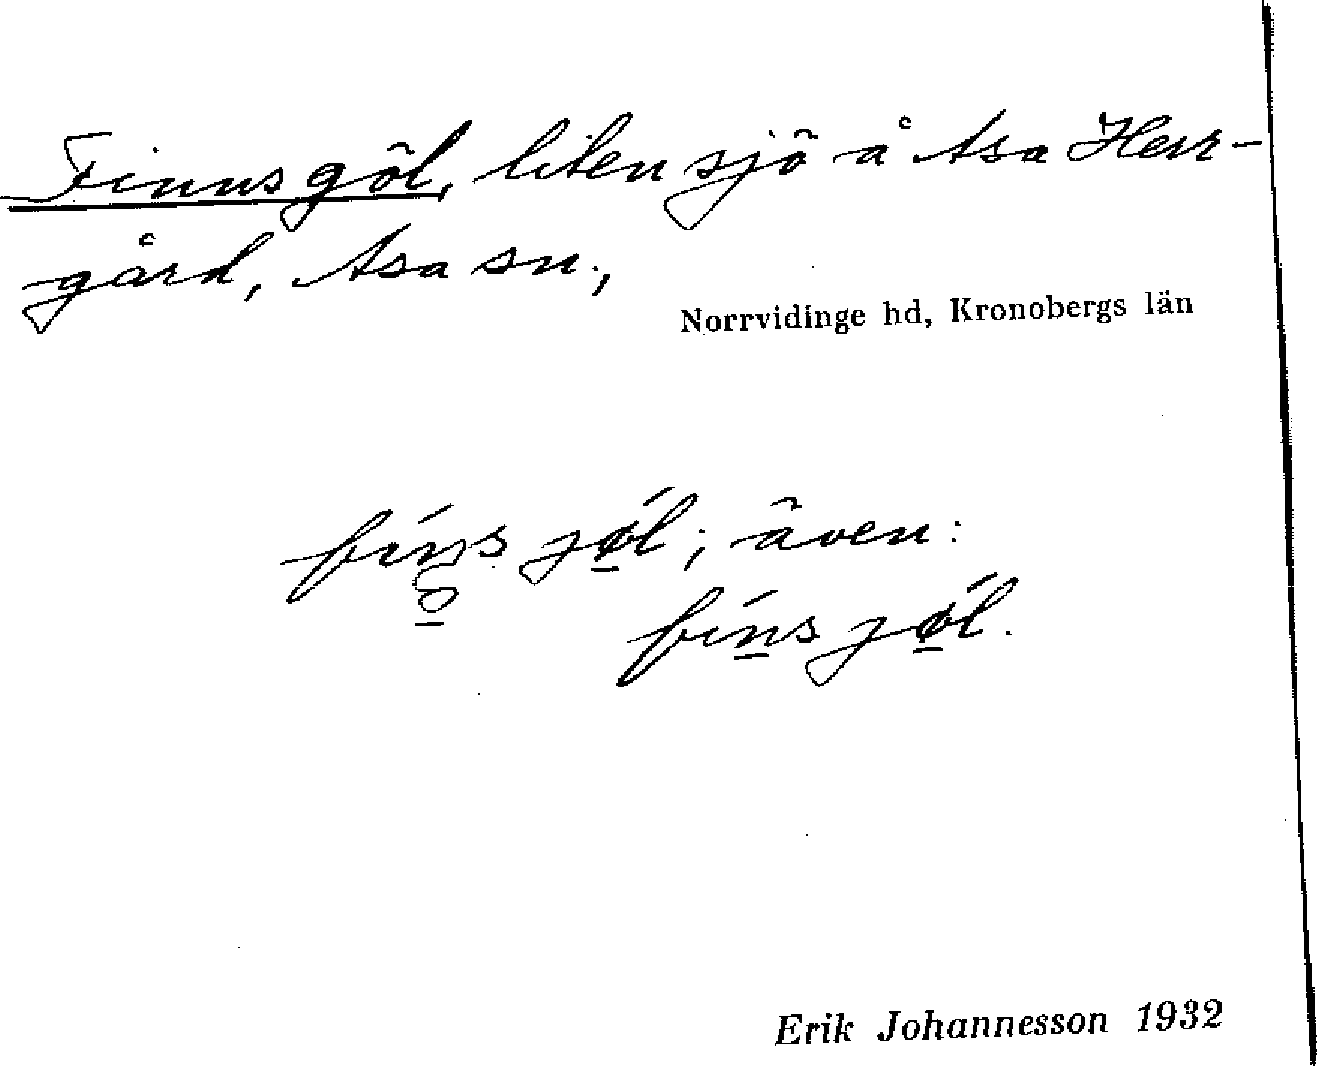 Finnsgöl, liten sjö å Asa Herr-
gård, Asa sn.,
Norrvidinge hd, Kronobergs län
även:
Erik Johannesson 1932